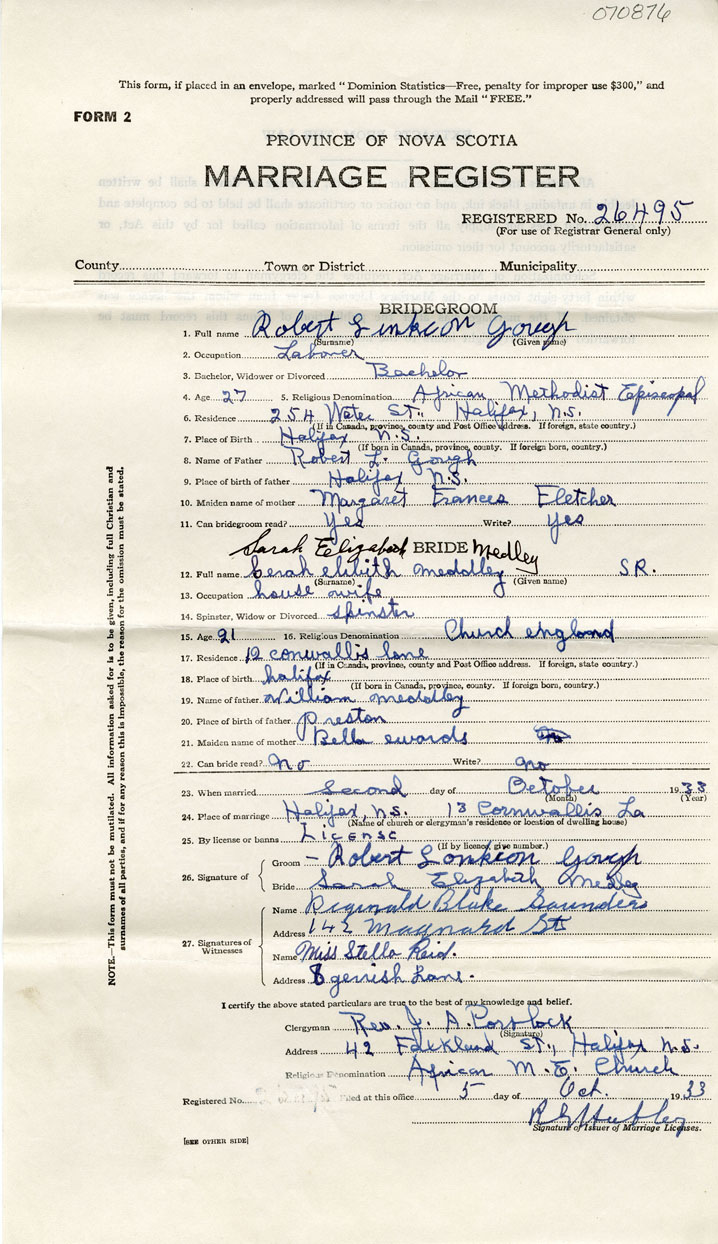 070876
This form, if placed in an envelope, marked "Dominion Statistics—Free, penalty for improper use $300," and
properly addressed will pass through the Mail "FREE."
FORM 2
PROVINCE OF NOVA SCOTIA
MARRIAGE REGISTER
REGISTERED No. 26495
(For use of Registrar General only)
County Town or District Municipality
BRIDEGROOM
1. Full name Robert Linkcon Gough
(Surname) (Given name)
2. Occupation Laborer
3. Bachelor, Widower or Divorced Bachelor
4. Age 27 5. Religious Denomination African Methodist Episcopal
6. Residence 254 Water St., Halifax, N.S.
(If in Canada, province, county and Post Office address. If foreign, state country.)
7. Place of Birth Halifax N.S.
(If born in Canada, province, county. If foreign born, country.)
8. Name of Father Robert L. Gough
9. Place of birth of father Halifax N.S.
10. Maiden name of mother Margaret Frances Fletcher
11. Can bridegroom read? Yes Write? Yes
Sarah Eelizabeth BRIDE Medley
12. Full name Cerah elibith meddley SR.
(Surname) (Given name)
13. Occupation house wife
14. Spinster, Widow or Divorced spinster
15. Age 21 16. Religious Denomination Church england
17. Residence 12 conwallis lane
(If in Canada, province, county and Post Office address. If foreign, state country.)
18. Place of birth halifax
(If born in Canada, province, county. If foreign born, country.)
19. Name of father William meddley
20. Place of birth of father Preston
21. Maiden name of mother Bella ewards
22. Can bride read? no Write? no
23. When married Second day of October 1933
(Month) (Year)
24. Place of marriage Halifax, N.S. 13 Cornwallis La
(Name of church or clergyman's residence or location of dwelling house)
25. By license or banns License
(If by license, give number.)
26. Signature of Groom – Robert Gough
Bride Sarah Elizabeth Medley
27. Signatures of Witnesses
Name Reginald Blake Saunders
Address 142 Maynard St
Name Miss Stella Reid.
Address 8 gerrish Lane.
I certify the above stated particulars are true to the best of my knowledge and belief.
Clergyman Rev. J. A.
(Signature)
Address 42 Falkland St., Halifax N.S.
Religious Denomination African M. E. Church
Registered No. filed at this office 5 day of Oct. 1933
Signature of Issuer of Marriage Licenses.
[SEE OTHER SIDE]
NOTE.—This form must not be mutilated. All information asked for is to be given, including full Christian and
surnames of all parties, and if for any reason this is impossible, the reason for the omission must be stated.